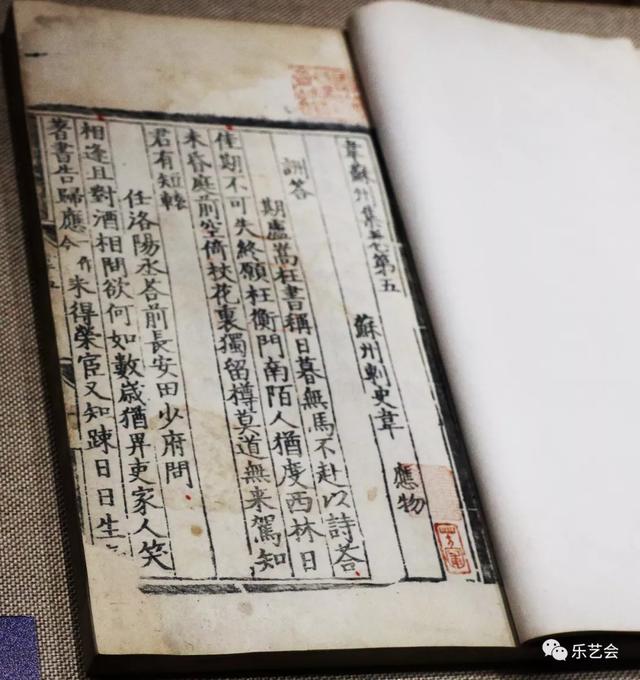 韋蘇州集卷第五
蘇州刺史韋 應物
詶荅
期盧嵩枉書稱日暮無馬不赴以詩荅
佳期不可失終願枉衡門南陌人猶度西林日
未昏庭前空倚杖花裏獨留樽莫道無来駕知
君有短轅
任洛陽丞荅前長安田少府問
相逢且對酒相問欲何如數歲猶卑吏家人笑
著書告歸應作今未得榮宦又知踈日日生
乐艺会